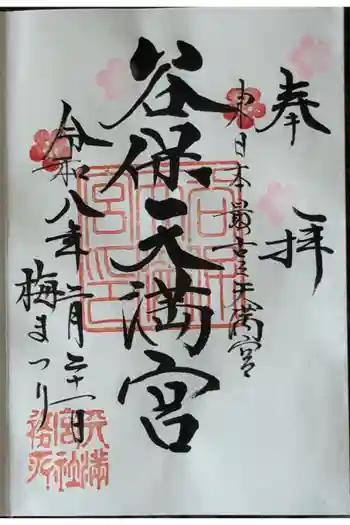 奉拝
東日本最古之天満宮
谷保天満宮
令和八年二月二十一日
梅まつり
天満宮社務所